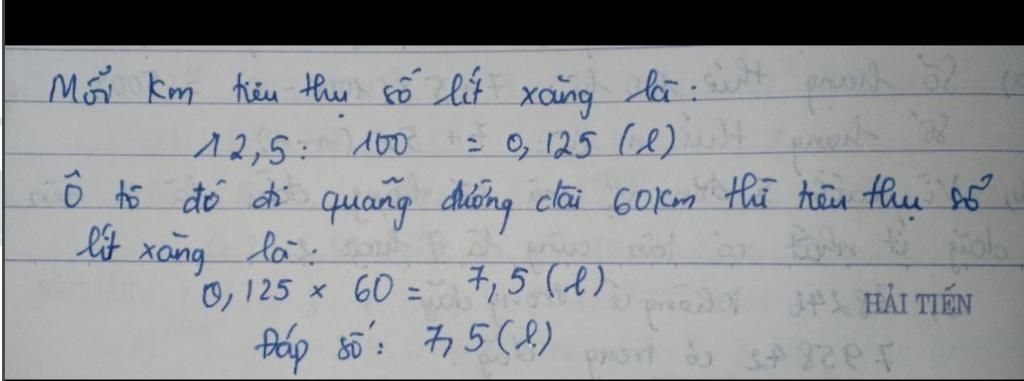 Mỗi km tiêu thụ số lít xăng là:
12,5 : 100 = 0,125 (l)
Ô tô đó đi quãng đường dài 60km thì tiêu thụ số
lít xăng là:
0,125 × 60 = 7,5 (l)
HẢI TIẾN
Đáp số: 7,5 (l)